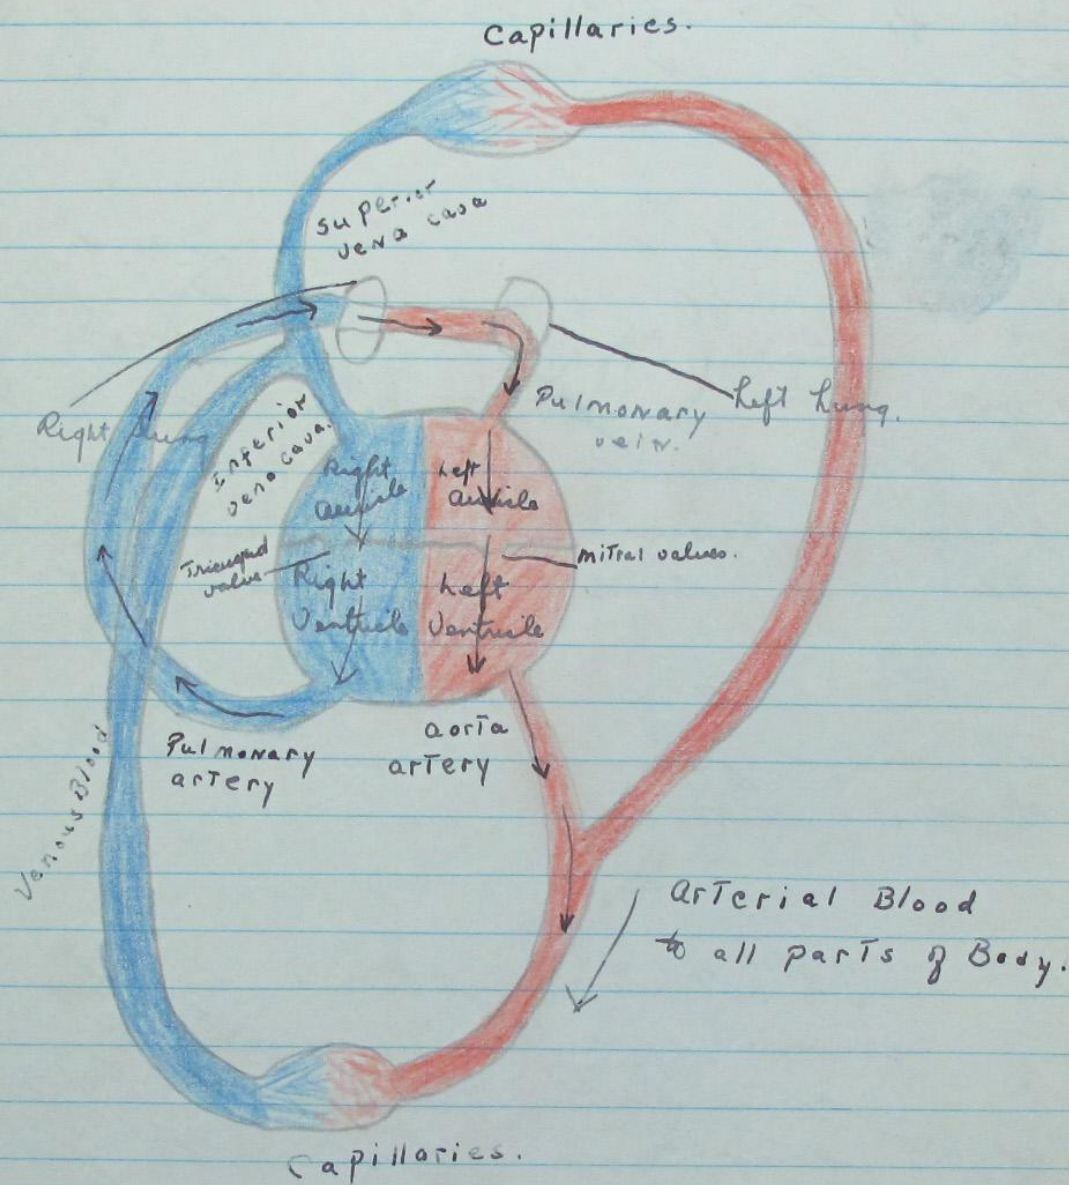 Capillaries.
Superior
vena cava
Right Lung
Inferior
vena cava.
Pulmonary
vein.
Left Lung.
Right
Auricle
Left
Auricle
Tricuspid
valve
mitral valves.
Right
Ventricle
Left
Ventricle
Pulmonary
artery
aorta
artery
Venous Blood
Arterial Blood
to all parts of Body.
Capillaries.